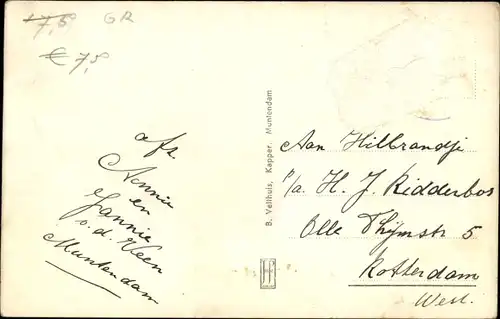 7,50 GR
€ 7,50
afz.
Annie
en
Jannie
v. d. Veen
Muntendam
B. Velthuis, Kapper, Muntendam
Aan Hilbrandje
p/a. H. J. Ridderbos
Olle Thijmstr 5
Rotterdam
West.